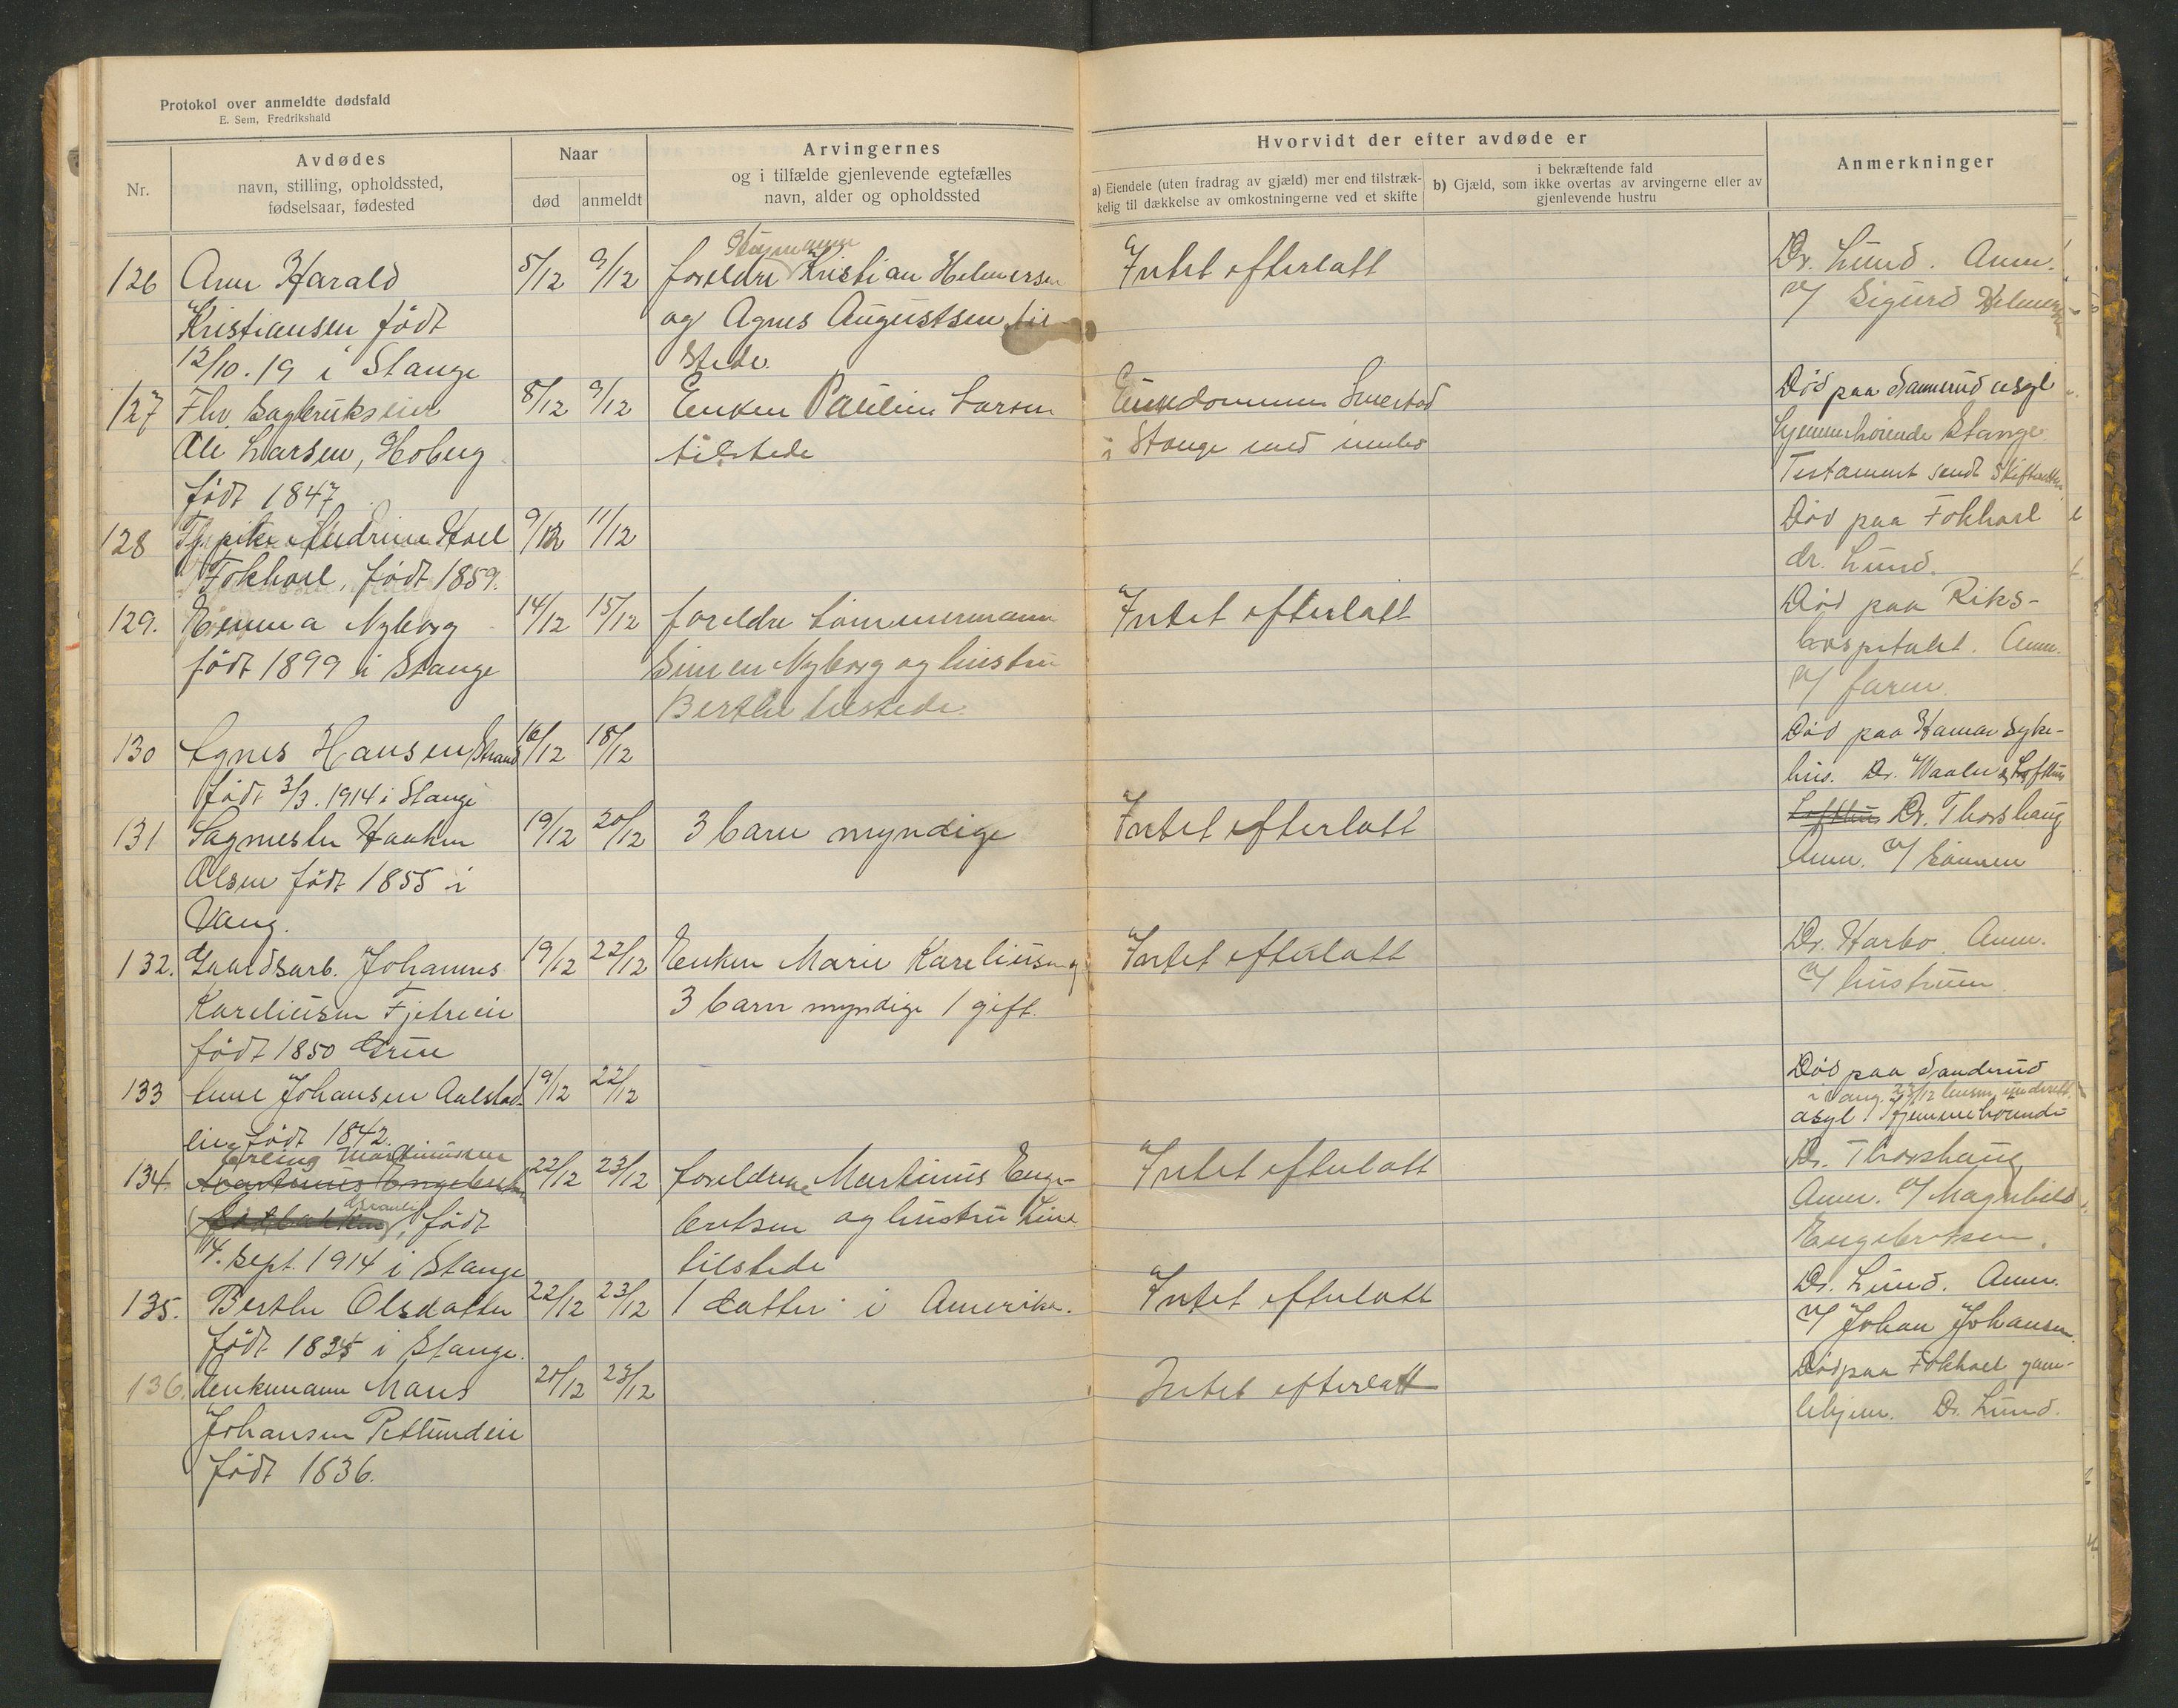 Protokol over anmeldte dødsfald
E. Sem, Fredrikshald
Nr.
Avdødes
navn, stilling, opholdssted,
fødselsaar, fødested
Naar
død
anmeldt
Arvingernes
og i tilfælde gjenlevende egtefælles
navn, alder og opholdssted
Hvorvidt der efter avdøde er
a) Eiendele (uten fradrag av gjæld) mer end tilstræk-
kelig til dækkelse av omkostningerne ved et skifte
i bekræftende fald
b) Gjæld, som ikke overtas av arvingerne eller av
gjenlevende hustru
Anmerkninger
126 Arne Harald 5/12 9/12 foreldre Kristian Helmersen Intet efterlatt Dr. Lund. Anm.
Kristiansen født og Agnes Augustsen til v/ Sigurd Helmersen
12/10.19 i Stange stede.
127 Fhv. sagbrukseier 8/12 9/12 Enken Pauline Larsen Eiendommen Smestad Død paa Sannerud asyl
Ole Larsen, Hoberg tilstede i Stange med innbo hjemmehørende Stange.
født 1847 Testament sendt Skifteretten
128 Tj. pike Andrine Hoel 9/12 11/12 Død paa Fokhoel
Fokhoel, født 1859. dr. Lund.
129. Emma Nyborg 14/12 15/12 foreldre tømmermann Intet efterlatt Død paa Riks-
født 1899 i Stange Simen Nyborg og hustru hospitalet. Anm.
Berthe tilstede v/ faren.
130 Agnes Hansen Strand 16/12 18/12 Død paa Hamar syke-
født 3/3. 1914 i Stange hus. Dr. Waaler & Lofthus
131 Sagmester Haaken 19/12 20/12 3 barn myndige Intet efterlatt Lofthus Dr. Thorshaug
Olsen født 1855 i Anm. v/ sønnen
Vang.
132. Gaardsarb. Johannes 19/12 22/12 Enken Marie Kareliusen og Intet efterlatt Dr. Harbo. Anm.
Kareliusen Fjetreeie 3 barn myndige 1 gift. v/ hustruen.
født 1850 Grue
133 Anne Johansen Aalstad- 19/12 22/12 Død paa Sanderud
eie født 1842. i Vang. 23/12 lensm. underrett.
asyl. Hjemmehørende
Erling Martinusen
134. Martinus Engebretsen 22/12 23/12 foreldrene Martinus Enge- Intet efterlatt Dr. Thorshaug
født bretsen og hustru Line Anm. v/ Magnhild
14. sept. 1914 i Stange tilstede Engebretsen.
135. Berthe Olsdatter 22/12 23/12 1 datter i Amerika. Intet efterlatt Dr. Lund. Anm.
født 1835 i Stange. v/ Johan Johansen.
136. Enkemann Mans 20/12 23/12 Intet efterlatt Død paa Fokhoel gam-
Johansen Petlundeie lehjem. Dr. Lund.
født 1836.